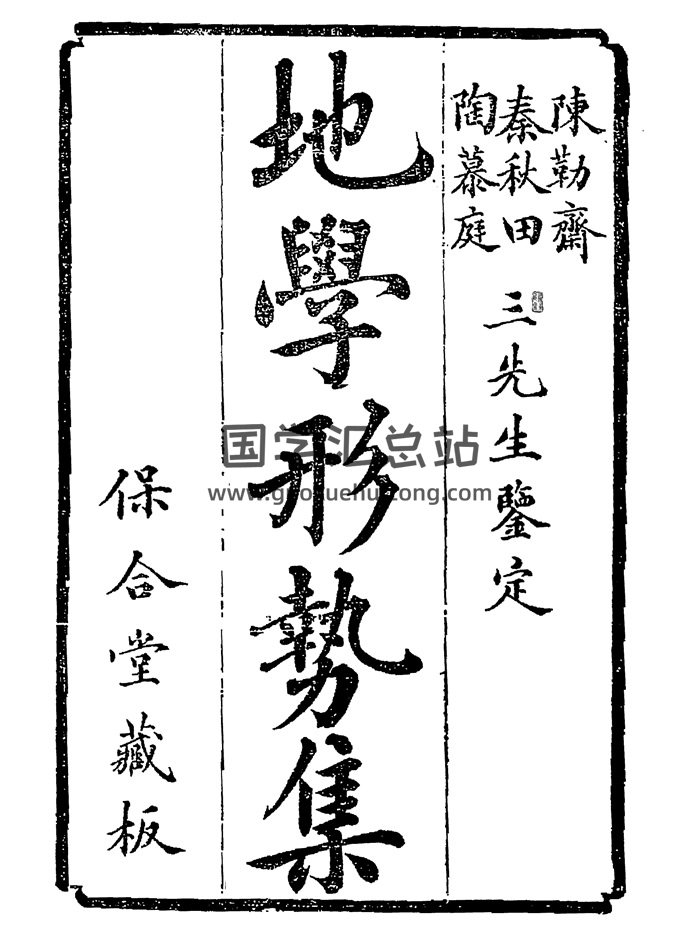 陳勤齋
秦秋田
陶慕庭
三先生鑒定
地學形勢集
保合堂藏板
国学汇总站
www.guoxuehuizong.com